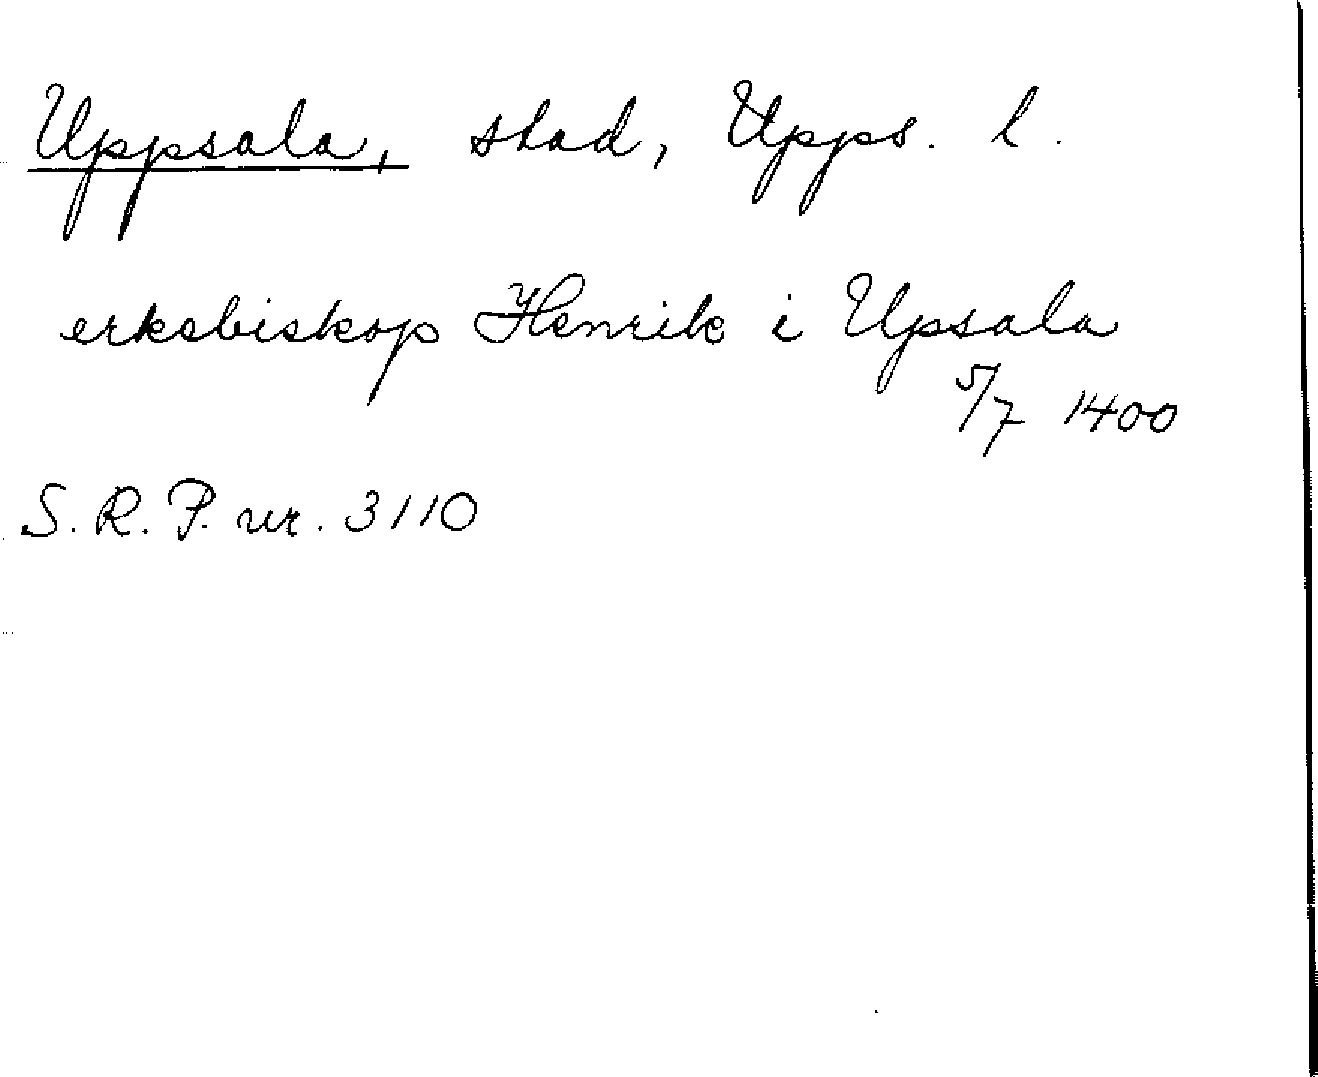 Uppsala, stad, Upps. l.
erksbiskop Henrik i Upsala
5/7 1400
S. R. P. nr. 3110